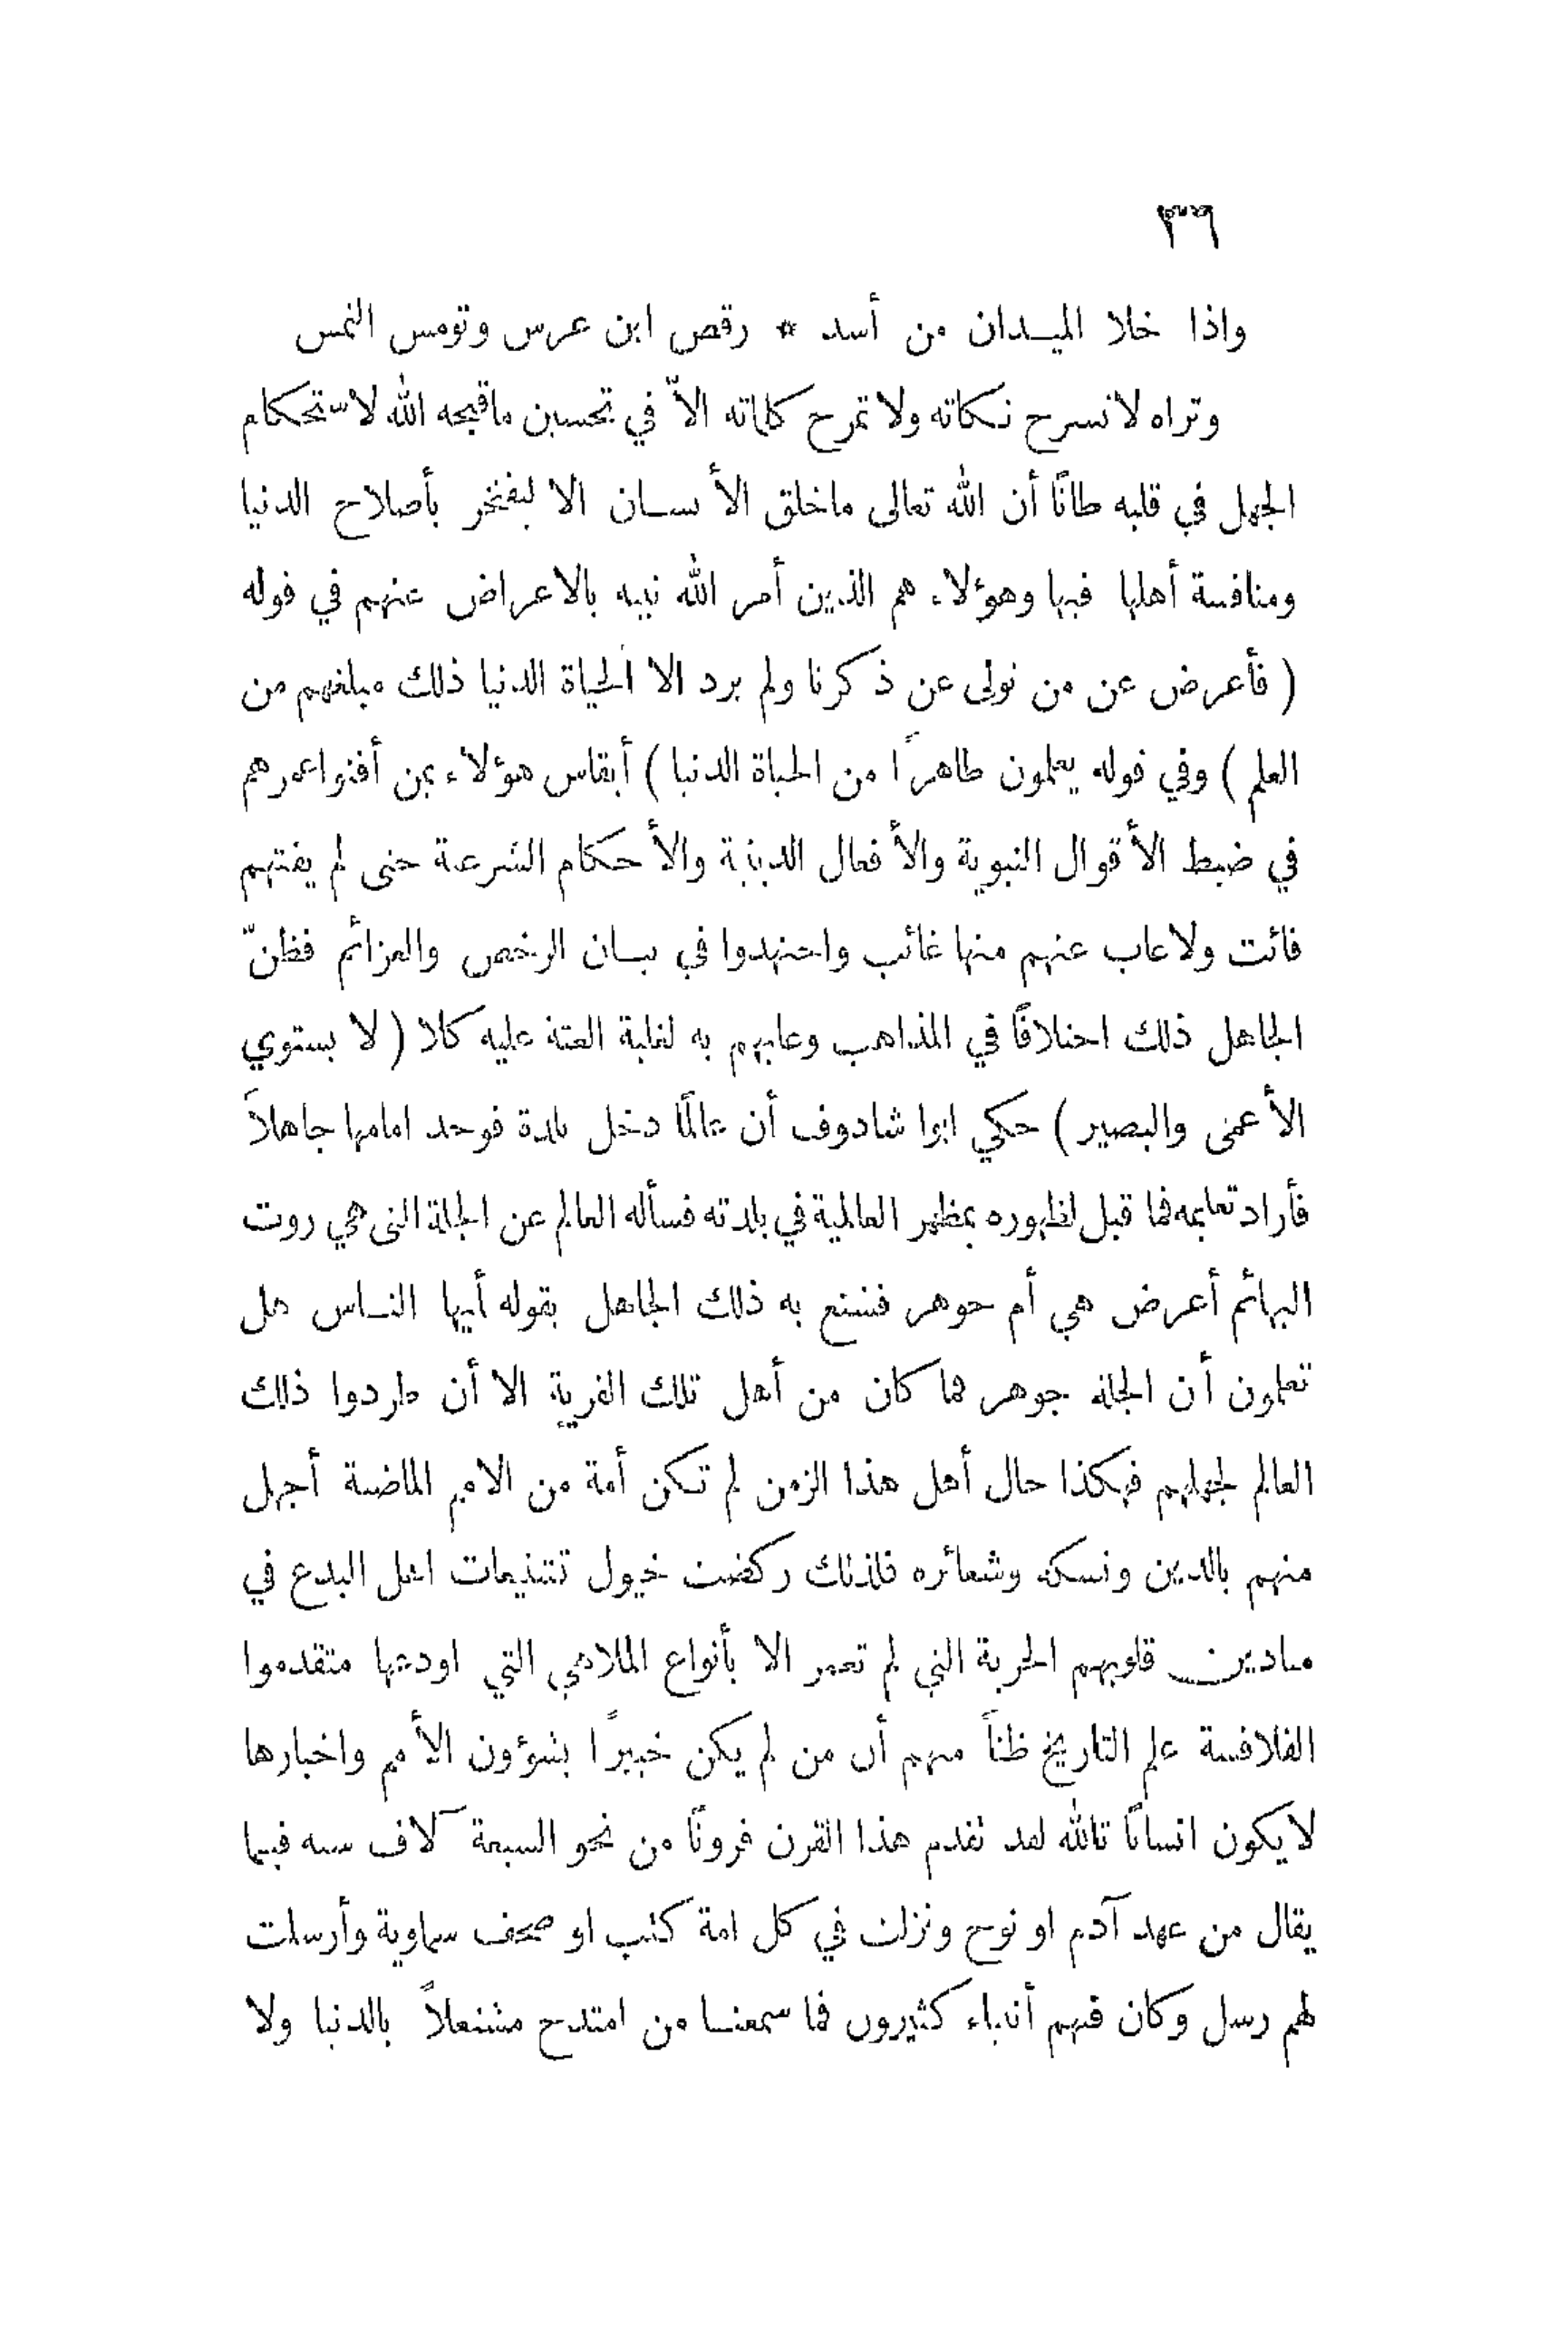 ٣٦
واذا خلا الميدان من أسد * رقص ابن عرس وتومس النمس
وتراه لا تسرح نكاته ولا تمرح كلماته الاّ في تحسين ماقبحه الله لاستحكام
الجهل في قلبه ظانًا أن الله تعالى ماخلق الأنسان الا ليفتخر بأصلاح الدنيا
ومنافسة أهلها فيها وهؤلاء هم الذين أمر الله نبيه بالاعراض عنهم في قوله
( فأعرض عن من تولى عن ذكرنا ولم يرد الا الحياة الدنيا ذلك مبلغهم من
العلم ) وفي قوله يعلمون ظاهرًا من الحياة الدنيا ) أيقاس هؤلاء بمن أفنوا عمرهم
في ضبط الأقوال النبوية والأفعال الدينية والأحكام الشرعية حتى لم يفتهم
فائت ولا غاب عنهم منها غائب واجتهدوا في بيان الرخص والعزائم فظنّ
الجاهل ذلك اختلافًا في المذاهب وعابهم به لغلبة العته عليه كلا ( لا يستوي
الأعمى والبصير ) حكي ابوا شادوف أن عالمًا دخل بلدة فوجد امامها جاهلاً
فأراد تعليمه فما قبل لظهوره بمظهر العالمية في بلدته فسأله العالم عن الجلة التى هي روت
البهائم أعرض هي أم جوهر فشنع به ذلك الجاهل بقوله أيها الناس هل
تعلمون أن الجلة جوهر فما كان من أهل تلك القرية الا أن طردوا ذلك
العالم لجهلهم فهكذا حال أهل هذا الزمن لم تكن أمة من الامم الماضية أجهل
منهم بالدين ونسكه وشعائره فلذلك ركضت خيول تشنيعات اهل البدع في
ميادين قلوبهم الخربة التي لم تعمر الا بأنواع الملاهي التي اودعها متقدموا
الفلافسة علم التاريخ ظناً منهم أن من لم يكن خبيرًا بشؤون الأمم واخبارها
لا يكون انسانًا تالله لقد تقدم هذا القرن قرونًا من نحو السبعة آلاف سنه فيما
يقال من عهد آدم او نوح ونزلت في كل امة كتب او صحف سماوية وأرسلت
لهم رسل وكان فيهم أنبياء كثيرون فما سمعنا من امتدح مشتغلاً بالدنيا ولا